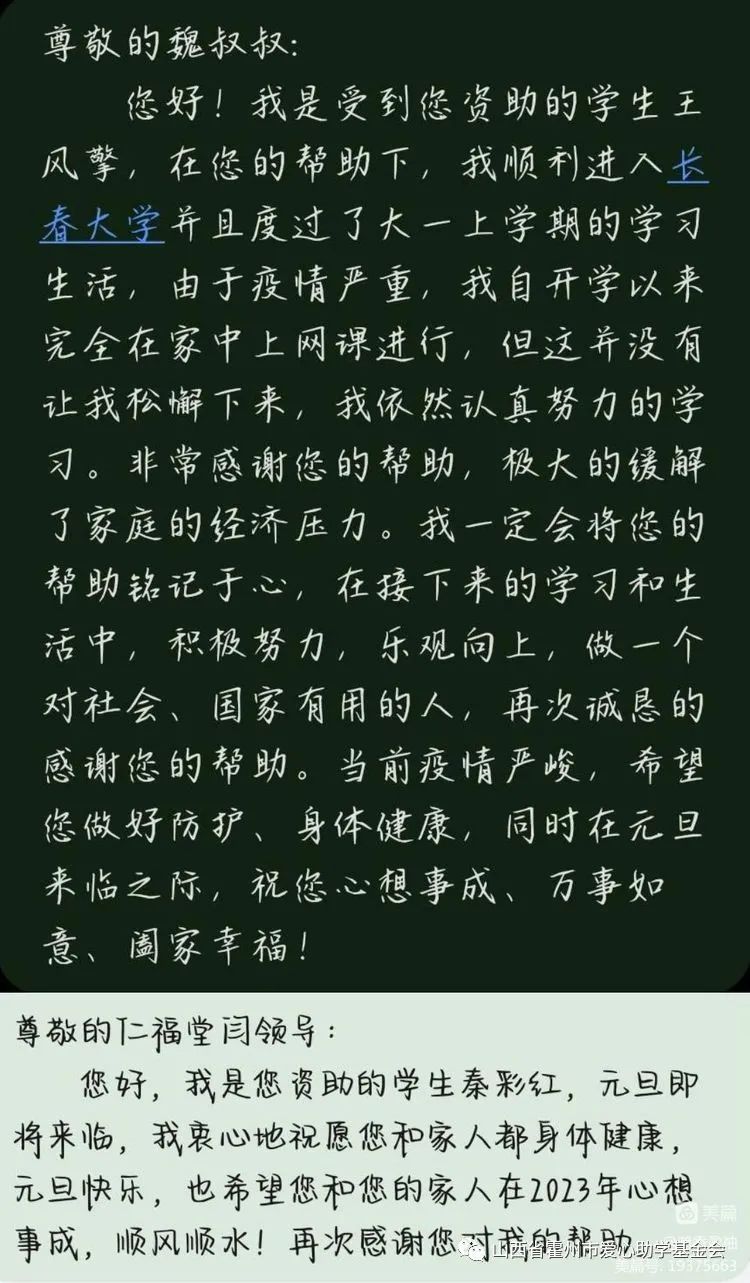 尊敬的魏叔叔：
您好！我是受到您资助的学生王
风擎，在您的帮助下，我顺利进入长
春大学并且度过了大一上学期的学习
生活，由于疫情严重，我自开学以来
完全在家中上网课进行，但这并没有
让我松懈下来，我依然认真努力的学
习。非常感谢您的帮助，极大的缓解
了家庭的经济压力。我一定会将您的
帮助铭记于心，在接下来的学习和生
活中，积极努力，乐观向上，做一个
对社会、国家有用的人，再次诚恳的
感谢您的帮助。当前疫情严峻，希望
您做好防护、身体健康，同时在元旦
来临之际，祝您心想事成、万事如
意、阖家幸福！
尊敬的仁福堂闫领导：
您好，我是您资助的学生秦彩红，元旦即
将来临，我衷心地祝愿您和家人都身体健康，
元旦快乐，也希望您和您的家人在2023年心想
事成，顺风顺水！再次感谢您对我的帮助
美篇
山西省霍州市爱心助学基金会
美篇号：19375663